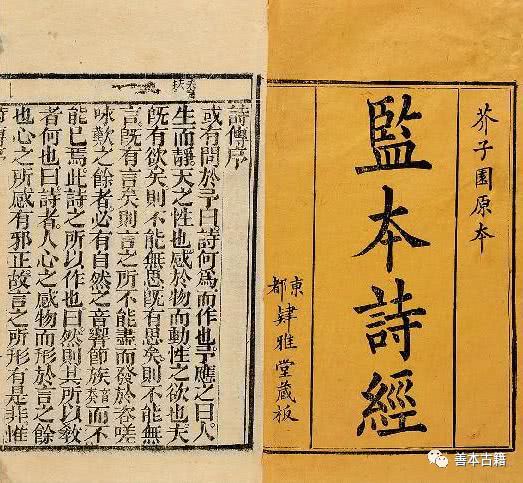 芥子園原本
監本詩經
東都
肄雅堂藏板
詩傳序
或有問於予曰詩何爲而作也予應之曰人
生而靜天之性也感於物而動性之欲也夫
旣有欲矣則不能無思旣有思矣則不能無
言旣有言矣則言之所不能盡而發於咨嗟
咏歎之餘者必有自然之音響節族而不
能已焉此詩之所以作也曰然則其所以敎
者何也曰詩者人心之感物而形於言之餘
也心之所感有邪正故言之所形有是非惟
善本古籍